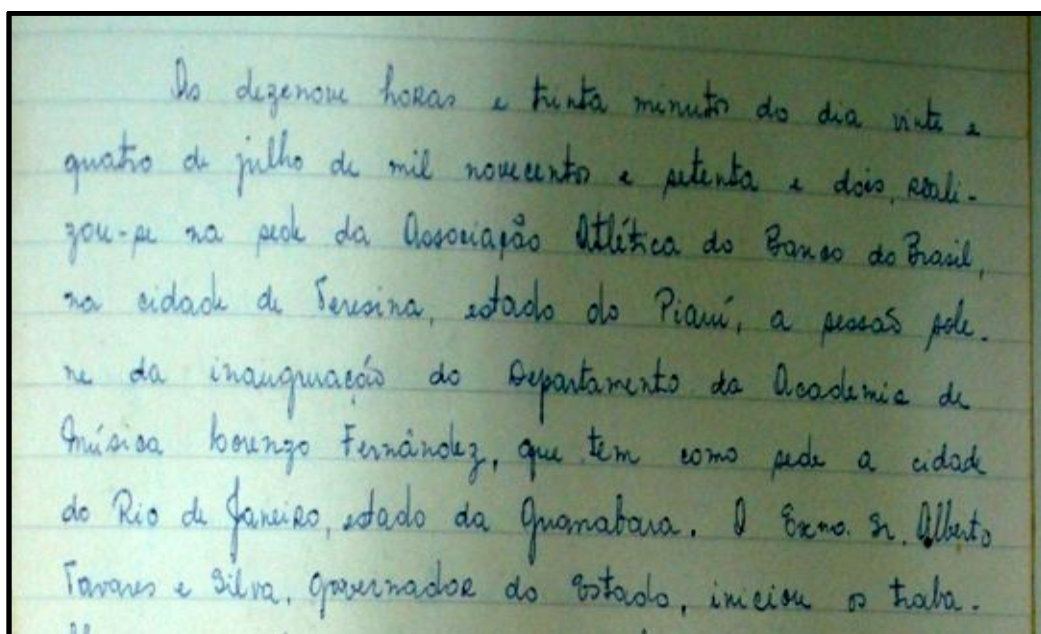 As dezenove horas e trinta minutos do dia vinte e
quatro de julho de mil novecentos e setenta e dois, reali-
zou-se na sede da Associação Atlética do Banco do Brasil,
na cidade de Teresina, estado do Piauí, a sessão sole-
ne da inauguração do Departamento da Academia de
Música Lorenzo Fernândez, que tem como sede a cidade
do Rio de Janeiro, estado da Guanabara. O Exmo. Sr. Alberto
Tavares e Silva, governador do Estado, iniciou os traba-